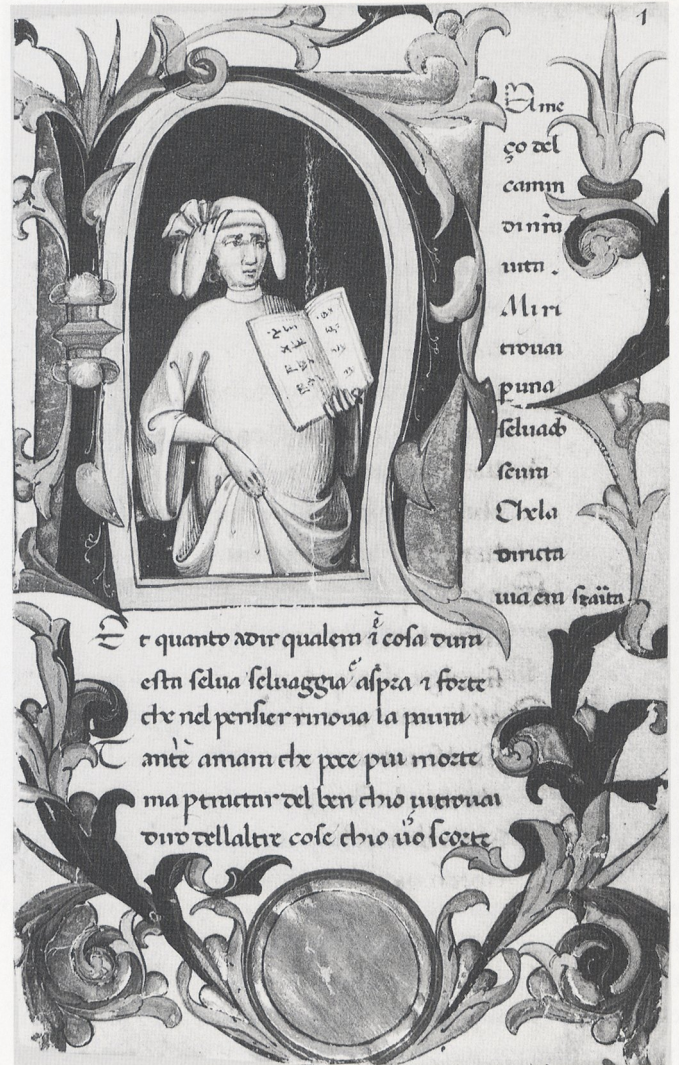 1
el me
ço del
camin
di nr̃a
uita .
Mi ri
trouai
p una
selua ob
scura
Che la
diricta
uia era
Et quanto adir qualera ĩ cosa dura
esta selua seluaggia aspra ⁊ forte
che nel pensier rinoua la paura
Tantè amara che poco piu morte
ma p tractar del ben chio ui trouai
diro dellaltre cose chio scorte